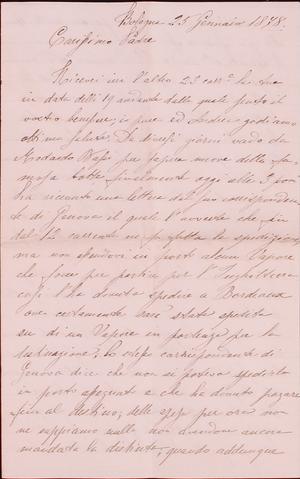 Bologna 25 Gennaio 1878.
Carissimo Padre
Ricevei ieri l'altro 23 corr.e la tua
in data delli 19 andante dalla quale sento il
vostro benessere, io pure ed godiamo
ottima salute. Da diversi giorni vado da
per sapere nuove della fa-
mosa botte finalmente oggi alle 3 pom
ha ricevuto una lettera dal suo corrisponden-
te di Genova il quale l'avverte che fin
dal 12 corrente fatta la spedizione
ma non essendovi in porto alcun Vapore
che fosse per partire per l'Inghilterra
così l'ha dovuta spedire a Bordeaux
ove certamente sarà stata spedita
su di un Vapore in partenza per la
destinazione; lo stesso corrispondente di
Genova dice che non si poteva spedirla
in porto assegnato e che ha dovuto pagare
fino al destino; delle spese per ora non
ne sappiamo nulla non avendone ancora
mandata la distinta, quando addunque